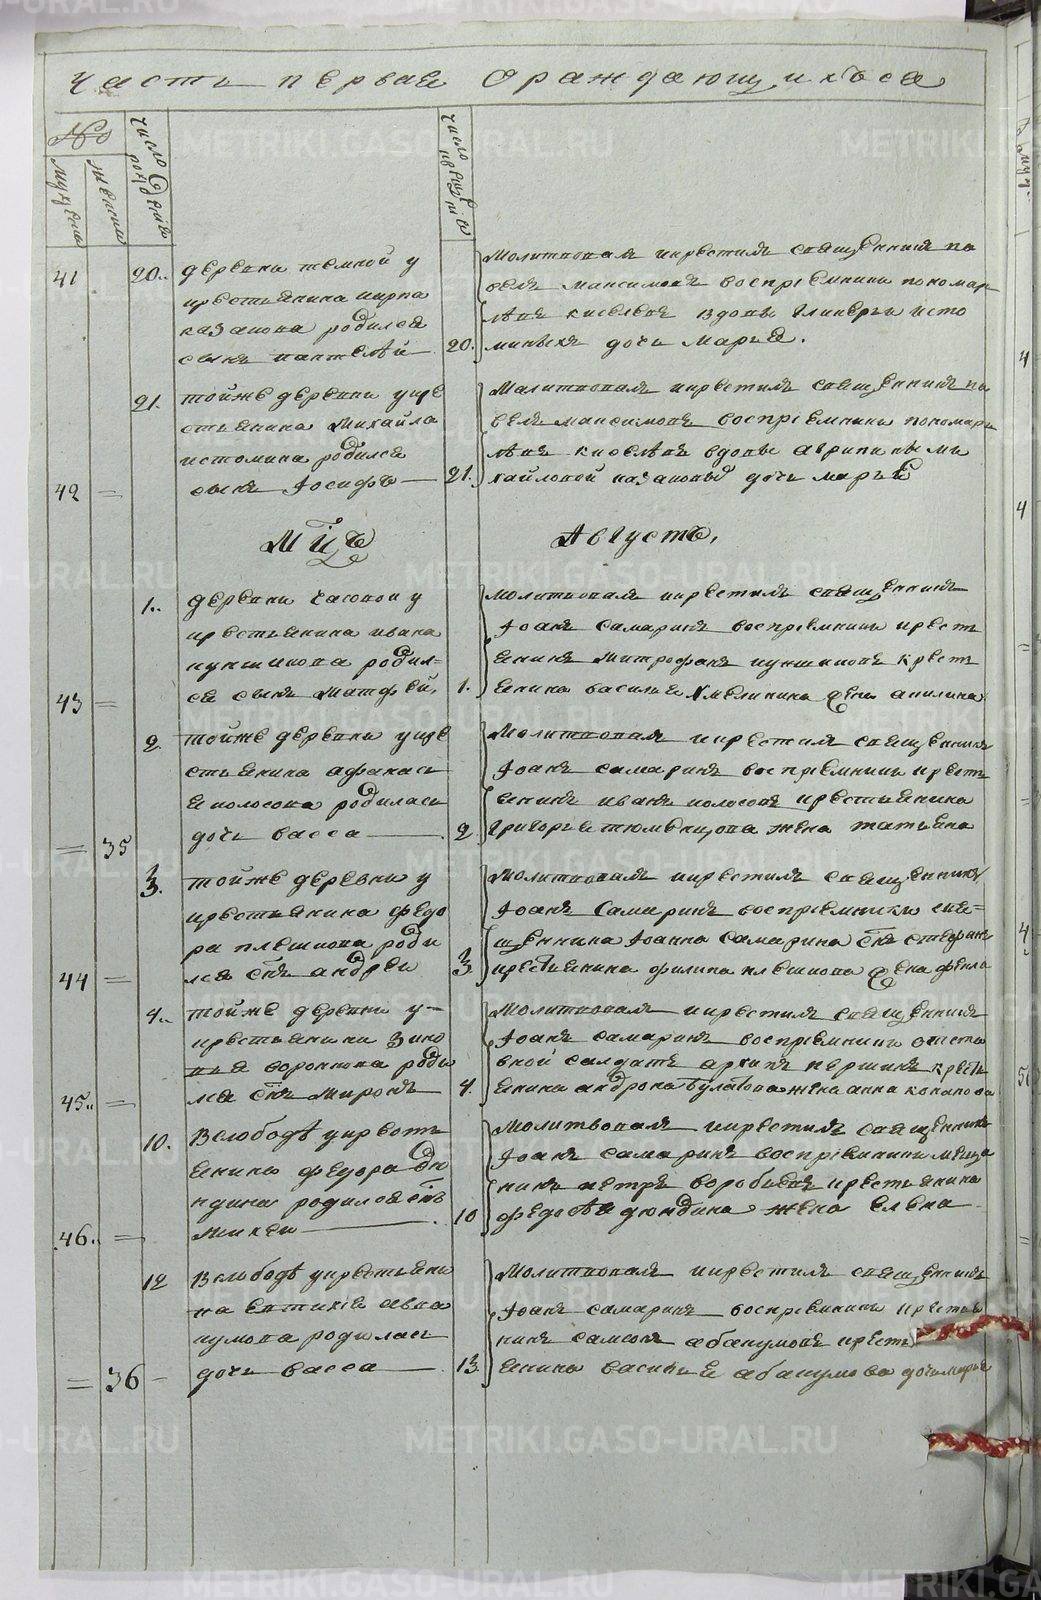 Часть первая о раждающихъся
№
мужеска
женска
число рожденiя
число крещенiя
41
20.. деревни темной у
крестьянина карпа
казакова родился
сынъ пантелѣй
20.
Молитвовалъ икрестилъ священникъ па
велъ максимовъ воспрiемники пономарь
левъ киселевъ вдовы гликерьи исто
миныхъ дочь марья.
21. тойже деревни укре
стьянина Михайла
истомина родился
сынъ Iосифъ
42 =
21.
Молитвовалъ икрестилъ священникъ па
велъ максимовъ воспрiемники пономарь
левъ киселевъ вдовы агрипины ми
хайловой казаковой дочь марья
Мцъ Августъ,
1.. деревни часовой у
крестьянина ивана
кукшинова родил=
ся сынъ Матфей,
43 =
1.
Молитвовалъ икрестилъ священникъ
Iоанъ самаринъ воспрiемники крест
янинъ митрофанъ кукшиновъ крест
янина василья жена акилина
2. тойже деревни укре
стьянина афанась
я колосова родилась
дочь васса
= 35
2
Молитвовалъ икрестилъ священникъ
Iоанъ самаринъ воспрiемники крест
янинъ иванъ колосовъ крестьянина
григорья тюменцова жена татьяна
3. тойже деревни у
крестьянина федо
ра плешкова роди
лся снъ андреи
44 =
3.
Молитвовалъ икрестилъ священникъ
Iоанъ Самаринъ воспрiемники свя=
щенника Iоанна самарина снъ стефанъ
крестьянина филипа плешкова жена фекла
4.. тойже деревни у=
крестьянина зино
вья воронкова роди
лся снъ Миронъ
45.. =
4.
Молитвовалъ икрестилъ священникъ
Iоанъ самаринъ воспрiемники отста
вной салдатъ архипъ першинъ крест
янина андрона булатова жена анна
10. Вслободѣ укрест
янина федора дю
ндина родился снъ
михеи
46.. =
10
Молитвовалъ икрестилъ священникъ
Iоанъ самаринъ воспрiемники меща
нинъ петръ воробьевъ крестьянина
федосѣя дюндина жена елена
12 Вслободѣ укрестьяни
на евтихiя аба
кумова родилась
дочь васса
= 36 =
13.
Молитвовалъ икрестилъ священникъ
Iоанъ самаринъ воспрiемники крестья
нинъ самсонъ абакумовъ крест
янина василья абакумова дочь марья